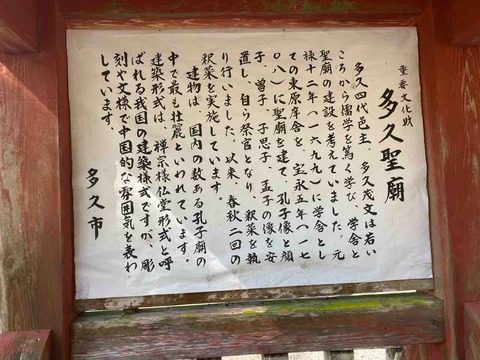 重要文化財
多久聖廟
多久四代邑主、多久茂文は若い
ころから儒学を篤く学び、学舎と
聖廟の建設を考えていました。元
禄十二年(一六九九)に学舎とし
ての東原庠舎を、宝永五年(一七
〇八)に聖廟を建て、孔子像と顔
子、曽子、子思子、孟子の像を安
置し、自ら祭官となり、釈菜を執
り行いました。以来、春秋二回の
釈菜を実施しています。
建物は、国内の数ある孔子廟の
中で最も壮麗といわれています。
建築形式は、禅宗様仏堂形式と呼
ばれる我国の建築様式ですが、彫
刻や文様で中国的な雰囲気を表わ
しています。
多久市